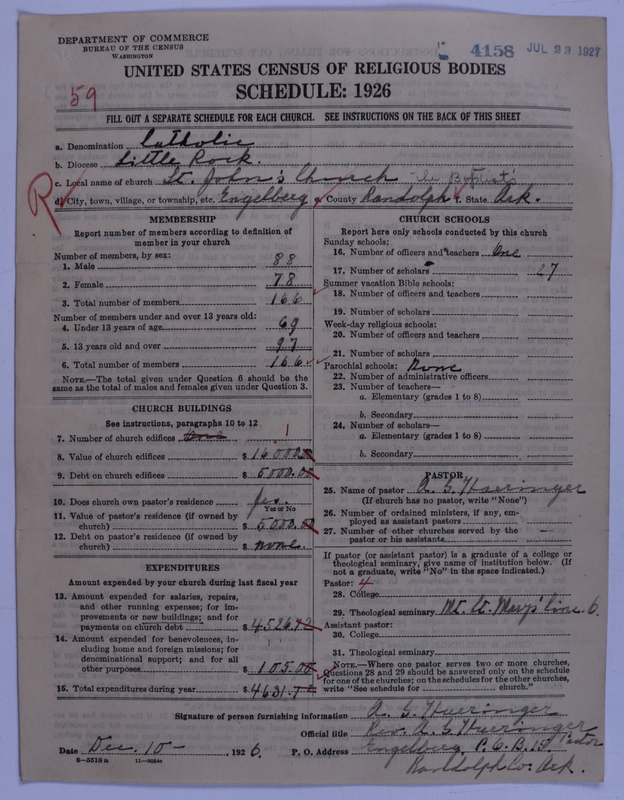 DEPARTMENT OF COMMERCE
BUREAU OF THE CENSUS
WASHINGTON
4158 JUL 23 1927
UNITED STATES CENSUS OF RELIGIOUS BODIES
SCHEDULE: 1926
59
FILL OUT A SEPARATE SCHEDULE FOR EACH CHURCH. SEE INSTRUCTIONS ON THE BACK OF THIS SHEET
a. Denomination Catholic
b. Diocese Little Rock.
c. Local name of church St. John's Church the Baptist
R
d. City, town, village, or township, etc. Engelberg e. County Randolph f. State Ark.
MEMBERSHIP
Report number of members according to definition of
member in your church
Number of members, by sex:
1. Male 88
2. Female 78
3. Total number of members 166
Number of members under and over 13 years old:
4. Under 13 years of age 69
5. 13 years old and over 97
6. Total number of members 166
NOTE.—The total given under Question 6 should be the
same as the total of males and females given under Question 3.
CHURCH BUILDINGS
See instructions, paragraphs 10 to 12
7. Number of church edifices One 1
8. Value of church edifices $16.000.00
9. Debt on church edifices $5000.00
10. Does church own pastor's residence Yes.
Yes or No
11. Value of pastor's residence (if owned by
church) $5000.00
12. Debt on pastor's residence (if owned by
church) $none.
EXPENDITURES
Amount expended by your church during last fiscal year
13. Amount expended for salaries, repairs,
and other running expenses; for im-
provements or new buildings; and for
payments on church debt $4526.72
14. Amount expended for benevolences, in-
cluding home and foreign missions; for
denominational support; and for all
other purposes $105.00
15. Total expenditures during year $4631.72
CHURCH SCHOOLS
Report here only schools conducted by this church
Sunday schools:
16. Number of officers and teachers One
17. Number of scholars 27
Summer vacation Bible schools:
18. Number of officers and teachers
19. Number of scholars
Week-day religious schools:
20. Number of officers and teachers
21. Number of scholars
Parochial schools: None
22. Number of administrative officers
23. Number of teachers—
a. Elementary (grades 1 to 8)
b. Secondary
24. Number of scholars—
a. Elementary (grades 1 to 8)
b. Secondary
PASTOR
25. Name of pastor A. G. Haeringer
(If church has no pastor, write "None")
26. Number of ordained ministers, if any, em-
ployed as assistant pastors
27. Number of other churches served by the
pastor or his assistants
If pastor (or assistant pastor) is a graduate of a college or
theological seminary, give name of institution below. (If
not a graduate, write "No" in the space indicated.)
Pastor: 4
28. College
29. Theological seminary Mt. St. Mary's Cinn. O.
Assistant pastor:
30. College
31. Theological seminary
NOTE.—Where one pastor serves two or more churches,
Questions 28 and 29 should be answered only on the schedule
for one of the churches; on the schedules for the other churches,
write "See schedule for church."
Signature of person furnishing information A. G. Haeringer
Official title Rev. A. G. Haeringer Pastor
Date Dec. 10 - 1926. P. O. Address Engelberg, P.O.
Randolph Co: Ark.
8—5519a 11—9084a